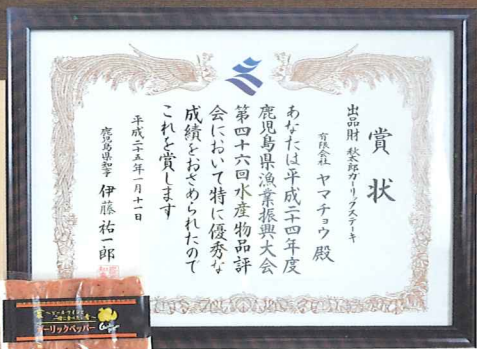 賞状
出品財 秋太郎ガーリックステーキ
有限会社 ヤマチョウ 殿
あなたは平成二十四年度
鹿児島県漁業振興大会
第四十六回水産物品評
会において特に優秀な
成績をおさめられたので
これを賞します
平成二十五年一月十一日
鹿児島県知事 伊藤祐一郎
ガーリックペッパー